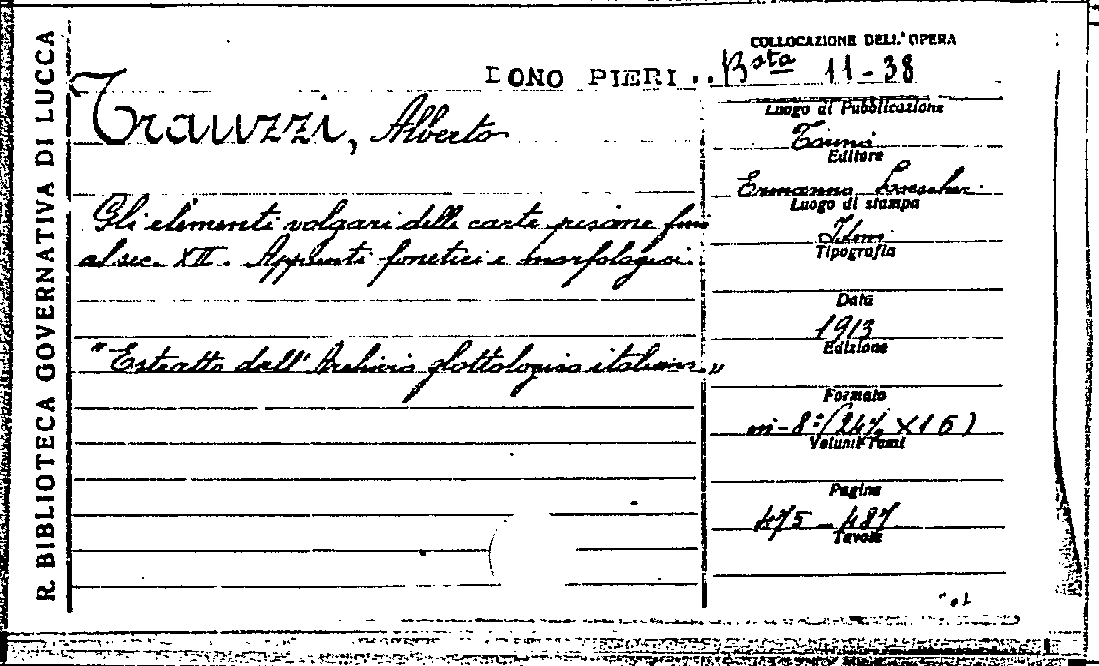 R. BIBLIOTECA GOVERNATIVA DI LUCCA
DONO PIERI..
COLLOCAZIONE DELL'OPERA
Bsta 11-38
Trauzzi, Alberto
Gli elementi volgari delle carte pisane fino
al sec. XII. Appunti fonetici e morfologici.
"Estratto dall'Archivio glottologico italiano„
Luogo di Pubblicazione
Torino
Editore
Ermanno Loescher
Luogo di stampa
Idem
Tipografia
Data
1913
Edizione
Formato
in-8° (24½ X 16)
Volumi Tomi
Pagine
475-487
Tavole